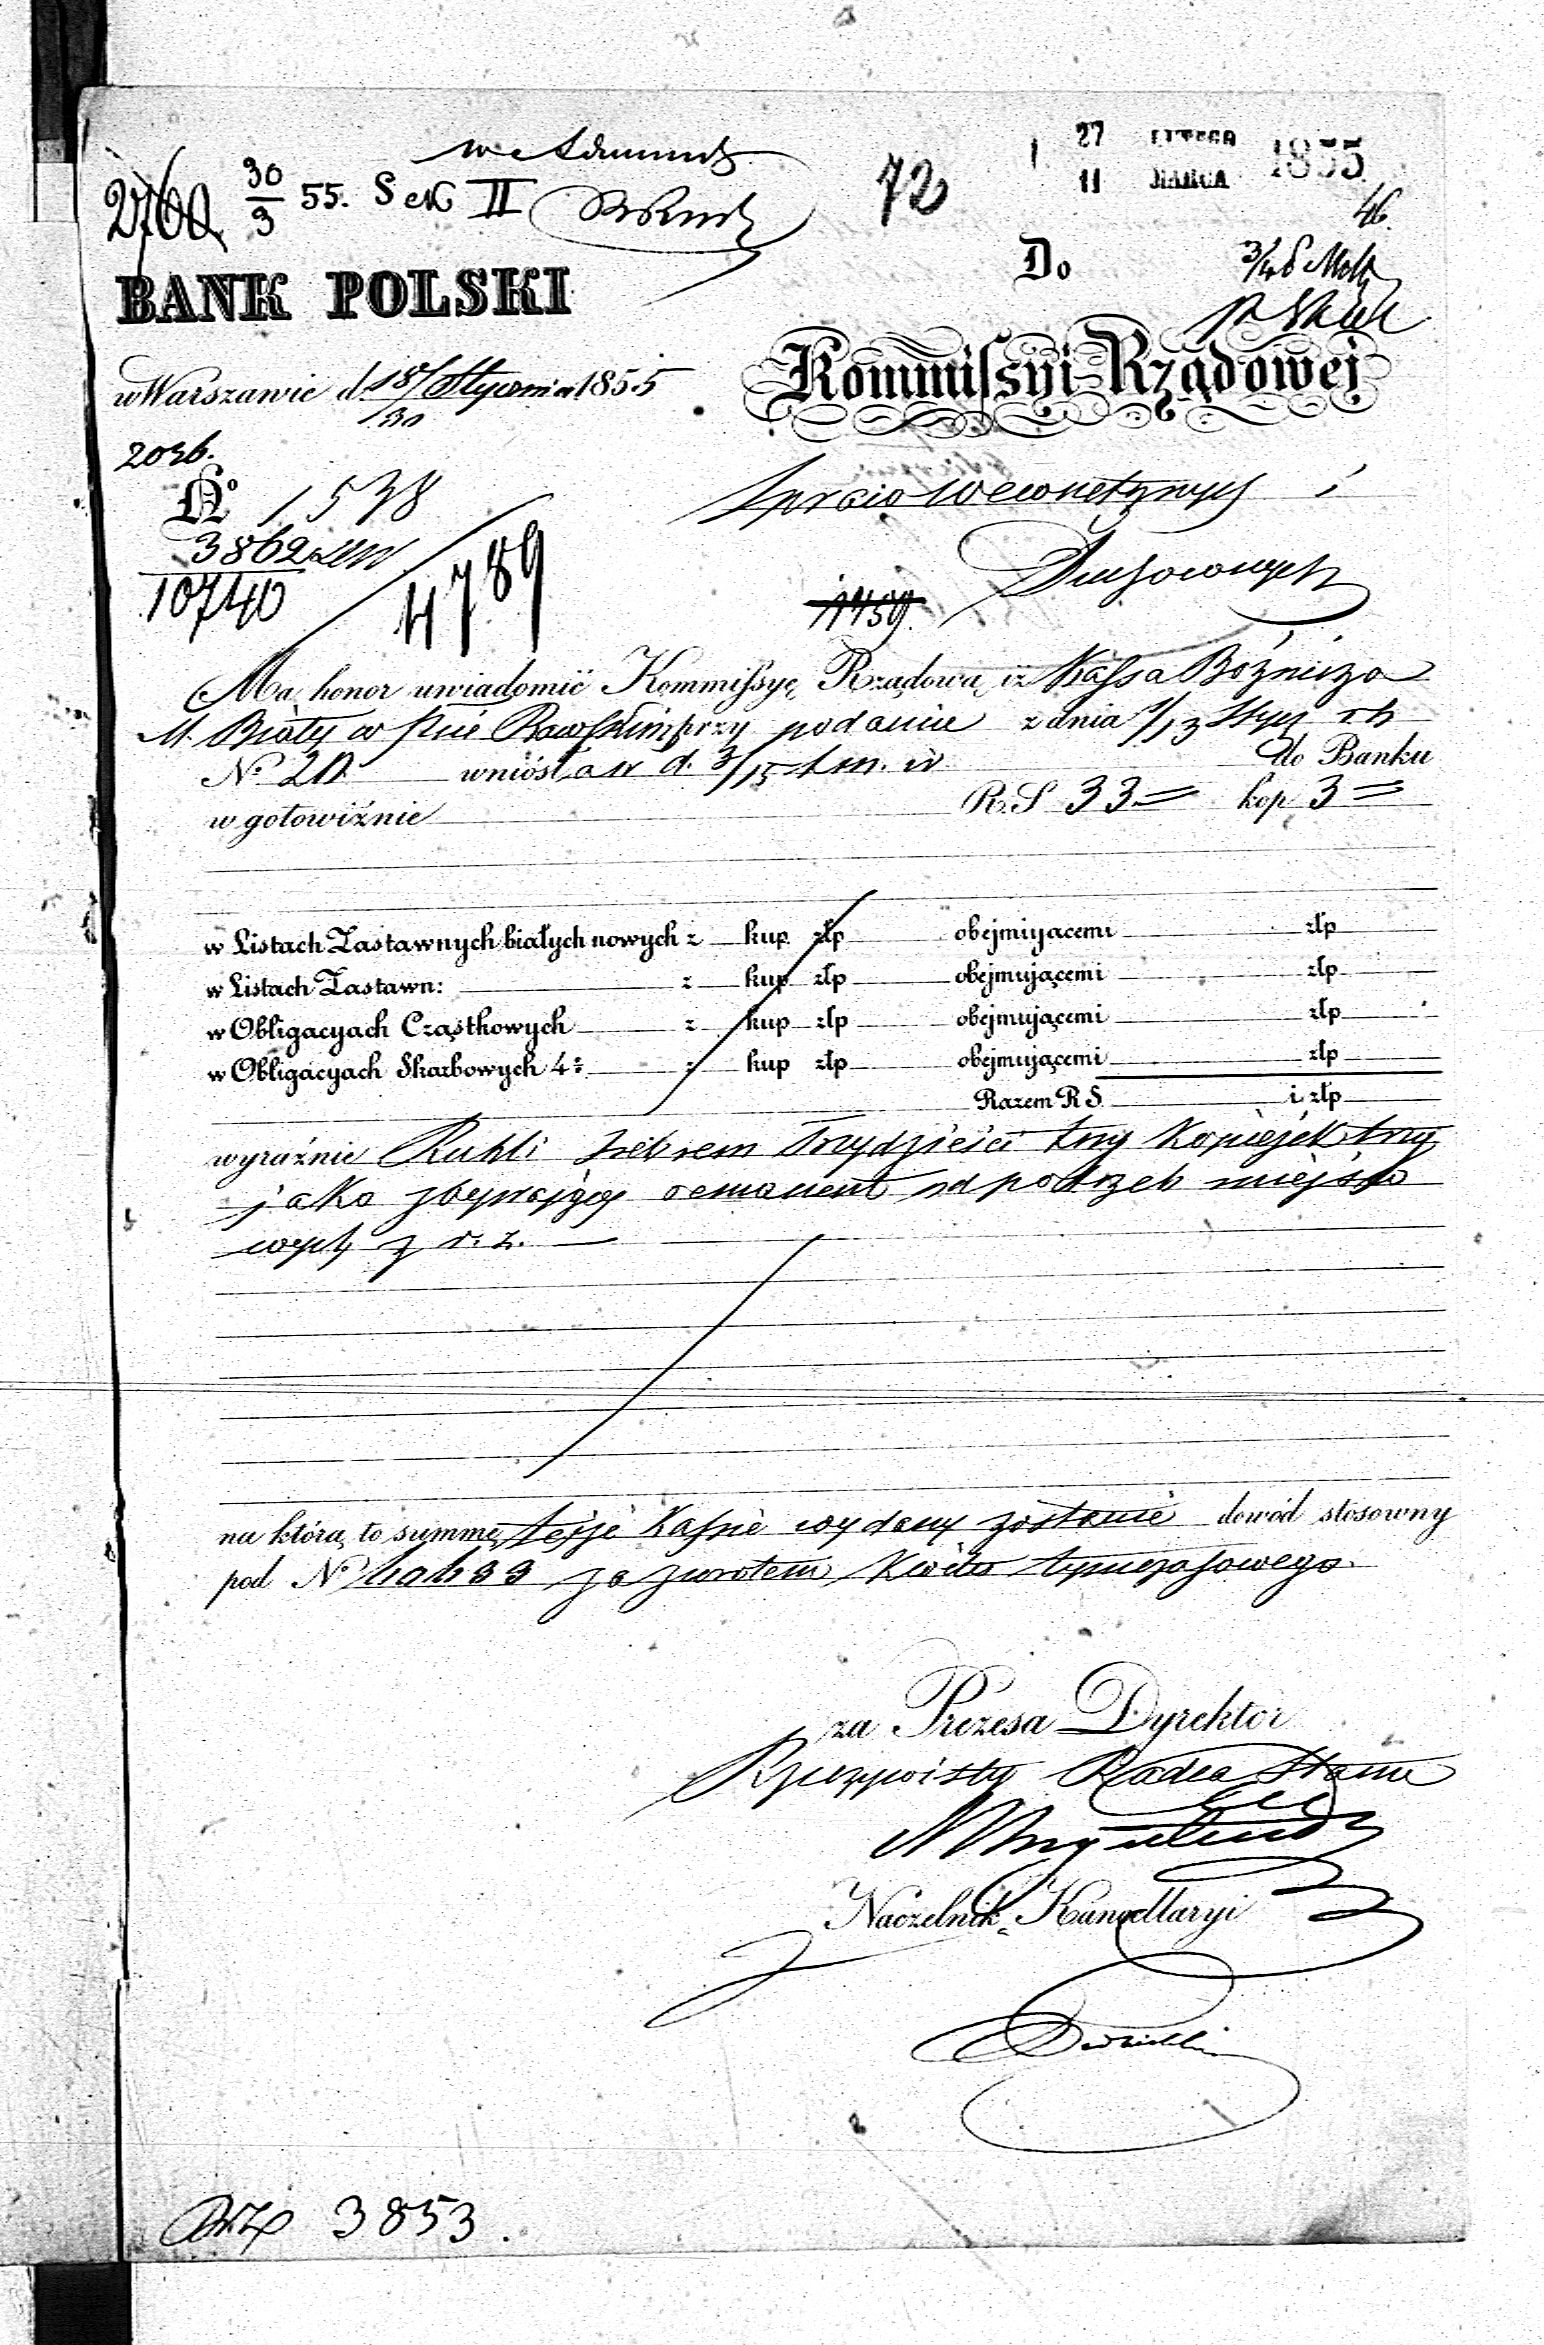 72
27 LUTEGO
11 MARCA 1855
46.
30/3 55. Sek II
BANK POLSKI
Do
Kommissyi Rządowej
w Warszawie d. 18/30 Stycznia 1855
Spraw Wewnętrznych i
Duchownych
No 1538
3862
10740
4789
1459.
Ma honor uwiadomić Kommissyę Rządową iż Kassa Bóźnicza
M. Biały w Pcie Rawskim przy podaniu z dnia 1/13 Stycz rb
No 20 wniosła w d. 3/15 t.m. ir do Banku
w gotowiźnie R.S 33 = kop 3 =
w Listach Zastawnych białych nowych z kup. złp obejmującemi złp
w Listach Zastawn: z kup złp obejmującemi złp
w Obligacyach Cząstkowych z kup złp obejmującemi złp
w Obligacyach Skarbowych 4% z kup złp obejmującemi złp
Razem R S i złp
wyraźnie Rubli srebrem Trzydzieści trzy Kopiejek trzy
jako zbywający remanent od potrzeb miejsco
wych z r. z.
na którą to summę tejże Kassie wydany zostanie dowód stosowny
pod No za zwrotem Kwitu tymczasowego.
za Prezesa Dyrektor
Rzeczywisty Radca Stanu
Naczelnik Kancellaryi
3853.